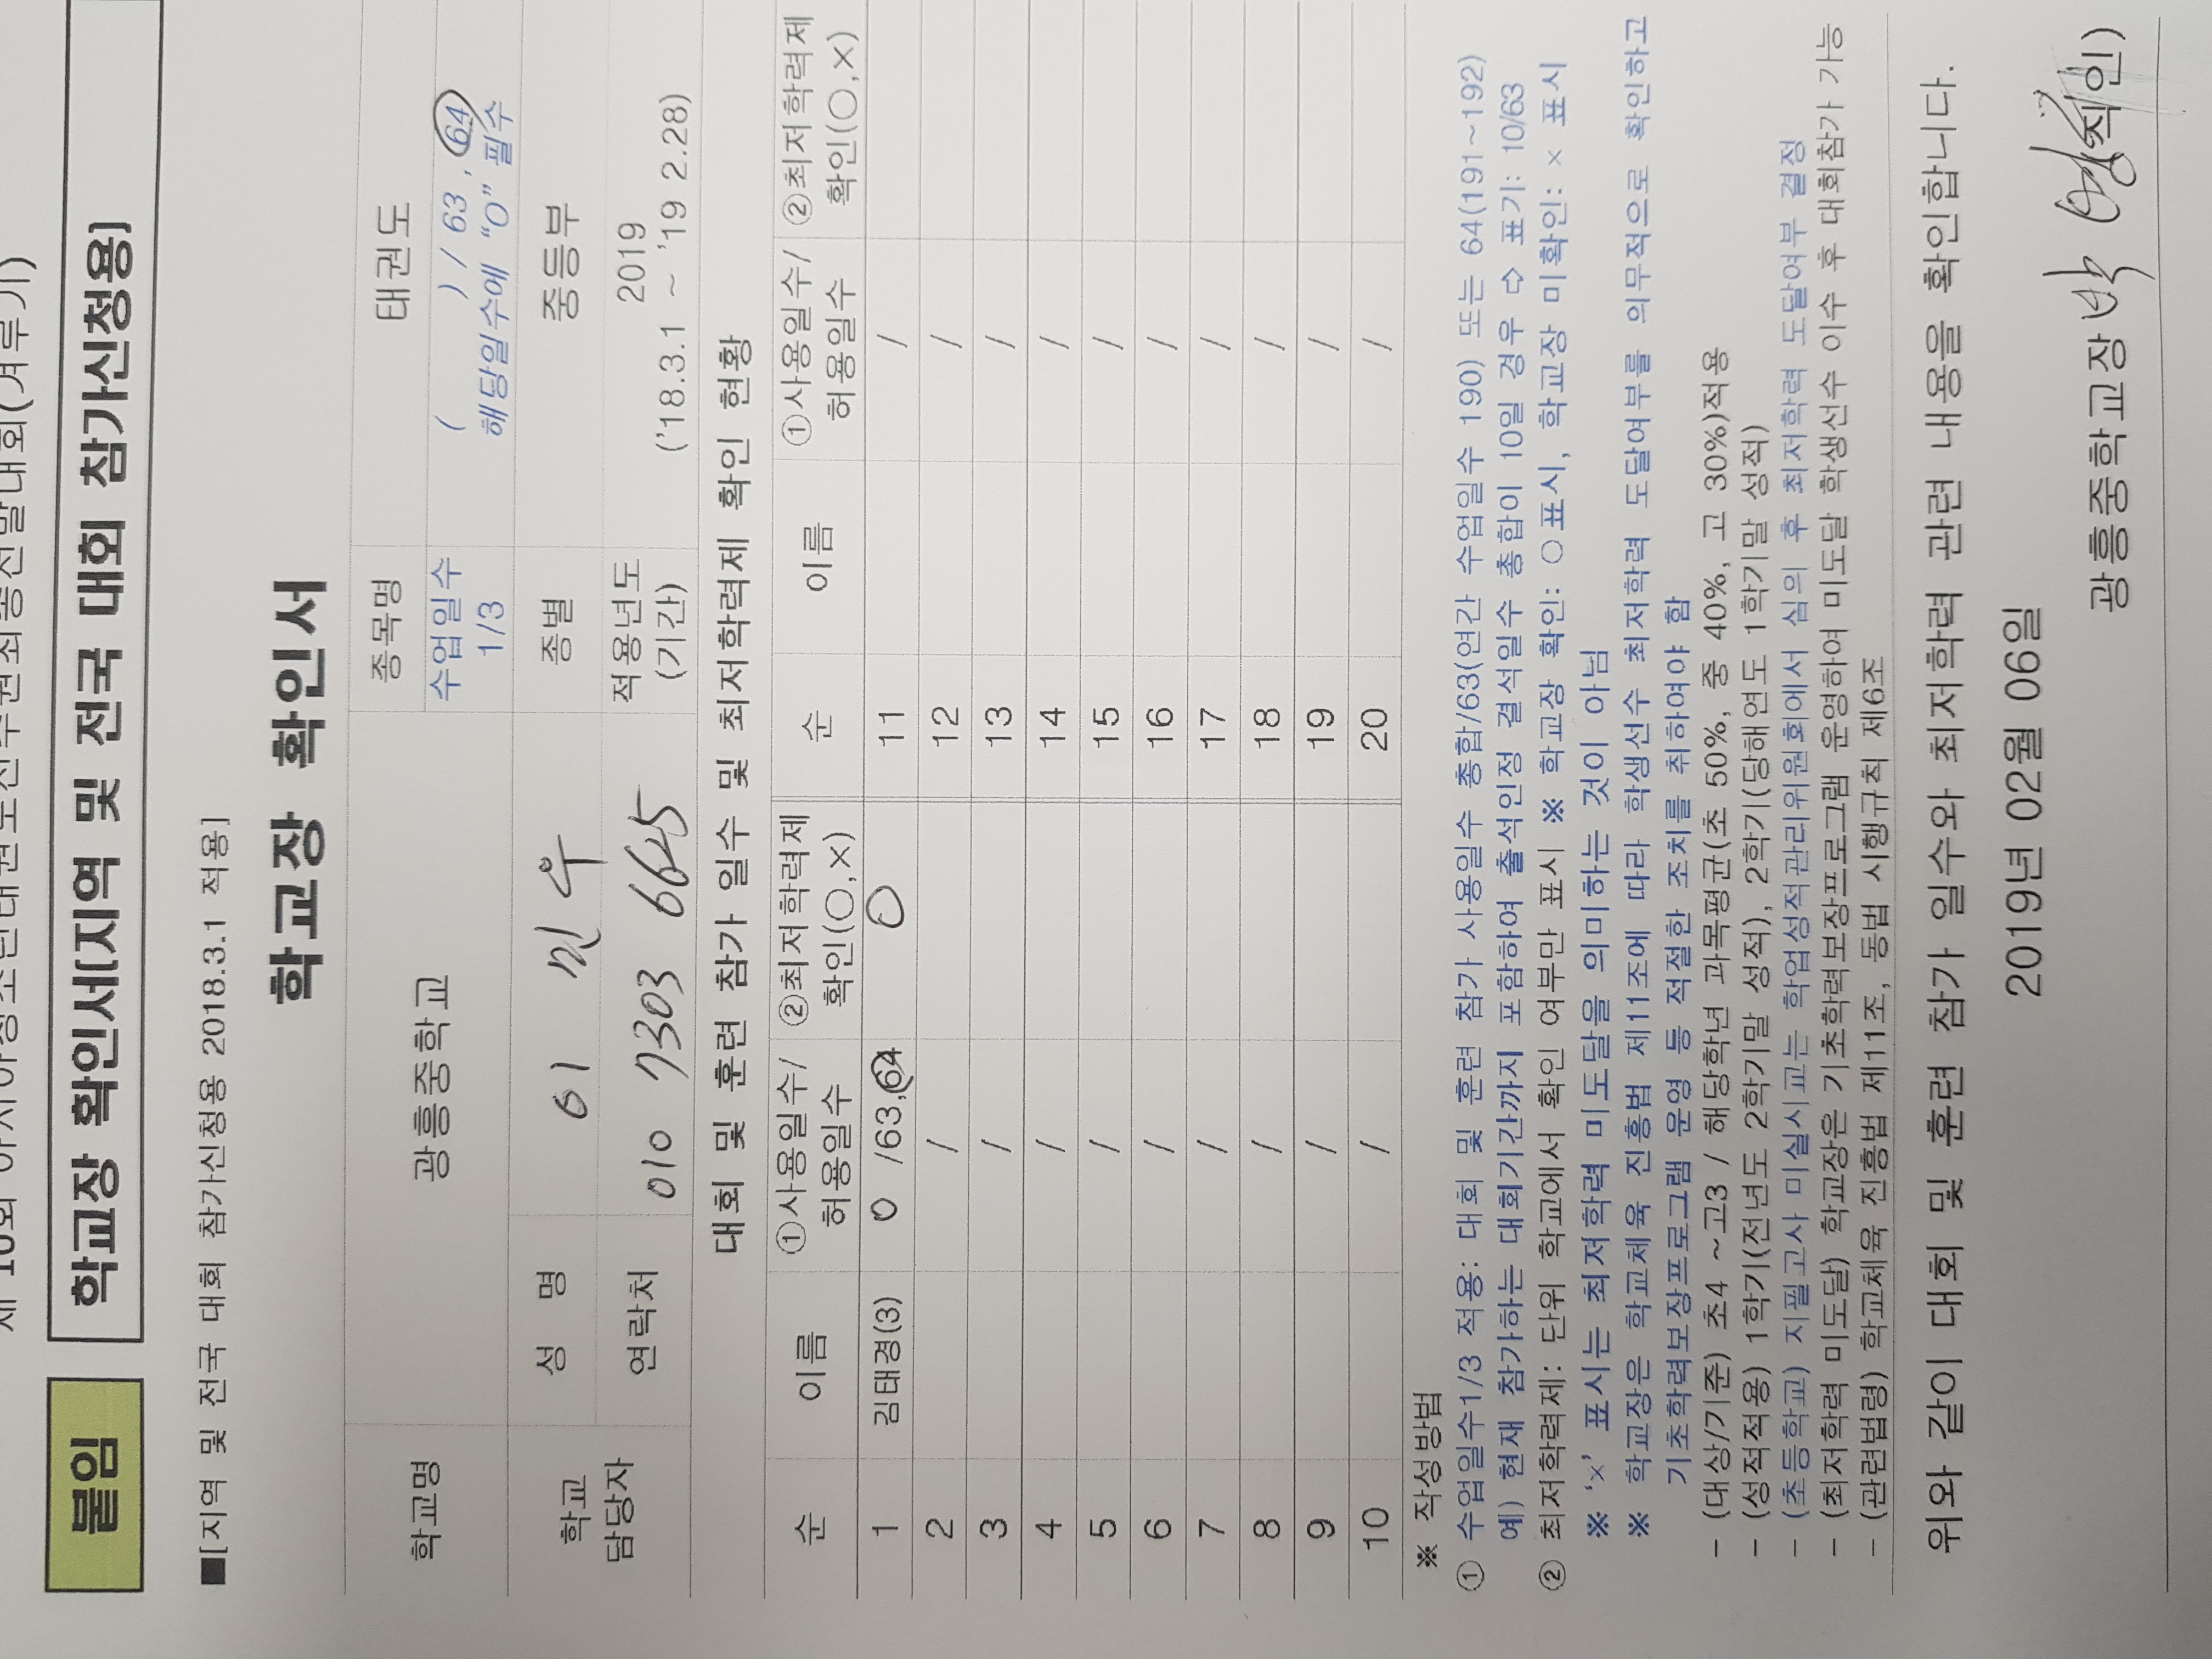 제 10회 아시아청소년태권도선수권최종선발대회(겨루기)
붙임 학교장 확인서[지역 및 전국 대회 참가신청용]
■[지역 및 전국 대회 참가신청용 2018.3.1 적용]
학교장 확인서
학교명 광흥중학교 종목명 태권도
수업일수 1/3 ( ) / 63 , 64
해당일수에 "O" 필수
학교 담당자 성 명 이 민 우 종별 중등부
연락처 010 7303 6645 적용년도 (기간) 2019
('18.3.1 ~ '19 2.28)
대회 및 훈련 참가 일수 및 최저학력제 확인 현황
순 이름 ①사용일수/허용일수 ②최저학력제 확인(○,×) 순 이름 ①사용일수/허용일수 ②최저학력제 확인(○,×)
1 김태경(3) 0 /63,64 ○ 11 /
2 / 12 /
3 / 13 /
4 / 14 /
5 / 15 /
6 / 16 /
7 / 17 /
8 / 18 /
9 / 19 /
10 / 20 /
※ 작성방법
① 수업일수1/3 적용: 대회 및 훈련 참가 사용일수 총합/63(연간 수업일수 190) 또는 64(191~192)
예) 현재 참가하는 대회기간까지 포함하여 출석인정 결석일수 총합이 10일 경우 ⇨ 표기: 10/63
② 최저학력제: 단위 학교에서 확인 여부만 표시 ※ 학교장 확인: ○표시, 학교장 미확인: × 표시
※ '×' 표시는 최저학력 미도달을 의미하는 것이 아님
※ 학교장은 학교체육 진흥법 제11조에 따라 학생선수 최저학력 도달여부를 의무적으로 확인하고
기초학력보장프로그램 운영 등 적절한 조치를 취하여야 함
- (대상/기준) 초4 ~고3 / 해당학년 과목평균(초 50%, 중 40%, 고 30%)적용
- (성적적용) 1학기(전년도 2학기말 성적), 2학기(당해연도 1학기말 성적)
- (초등학교) 지필고사 미실시교는 학업성적관리위원회에서 심의 후 최저학력 도달여부 결정
- (최저학력 미도달) 학교장은 기초학력보장프로그램 운영하여 미도달 학생선수 이수 후 대회참가 가능
- (관련법령) 학교체육 진흥법 제11조, 동법 시행규칙 제6조
위와 같이 대회 및 훈련 참가 일수와 최저학력 관련 내용을 확인합니다.
2019년 02월 06일
광흥중학교장 (직인)